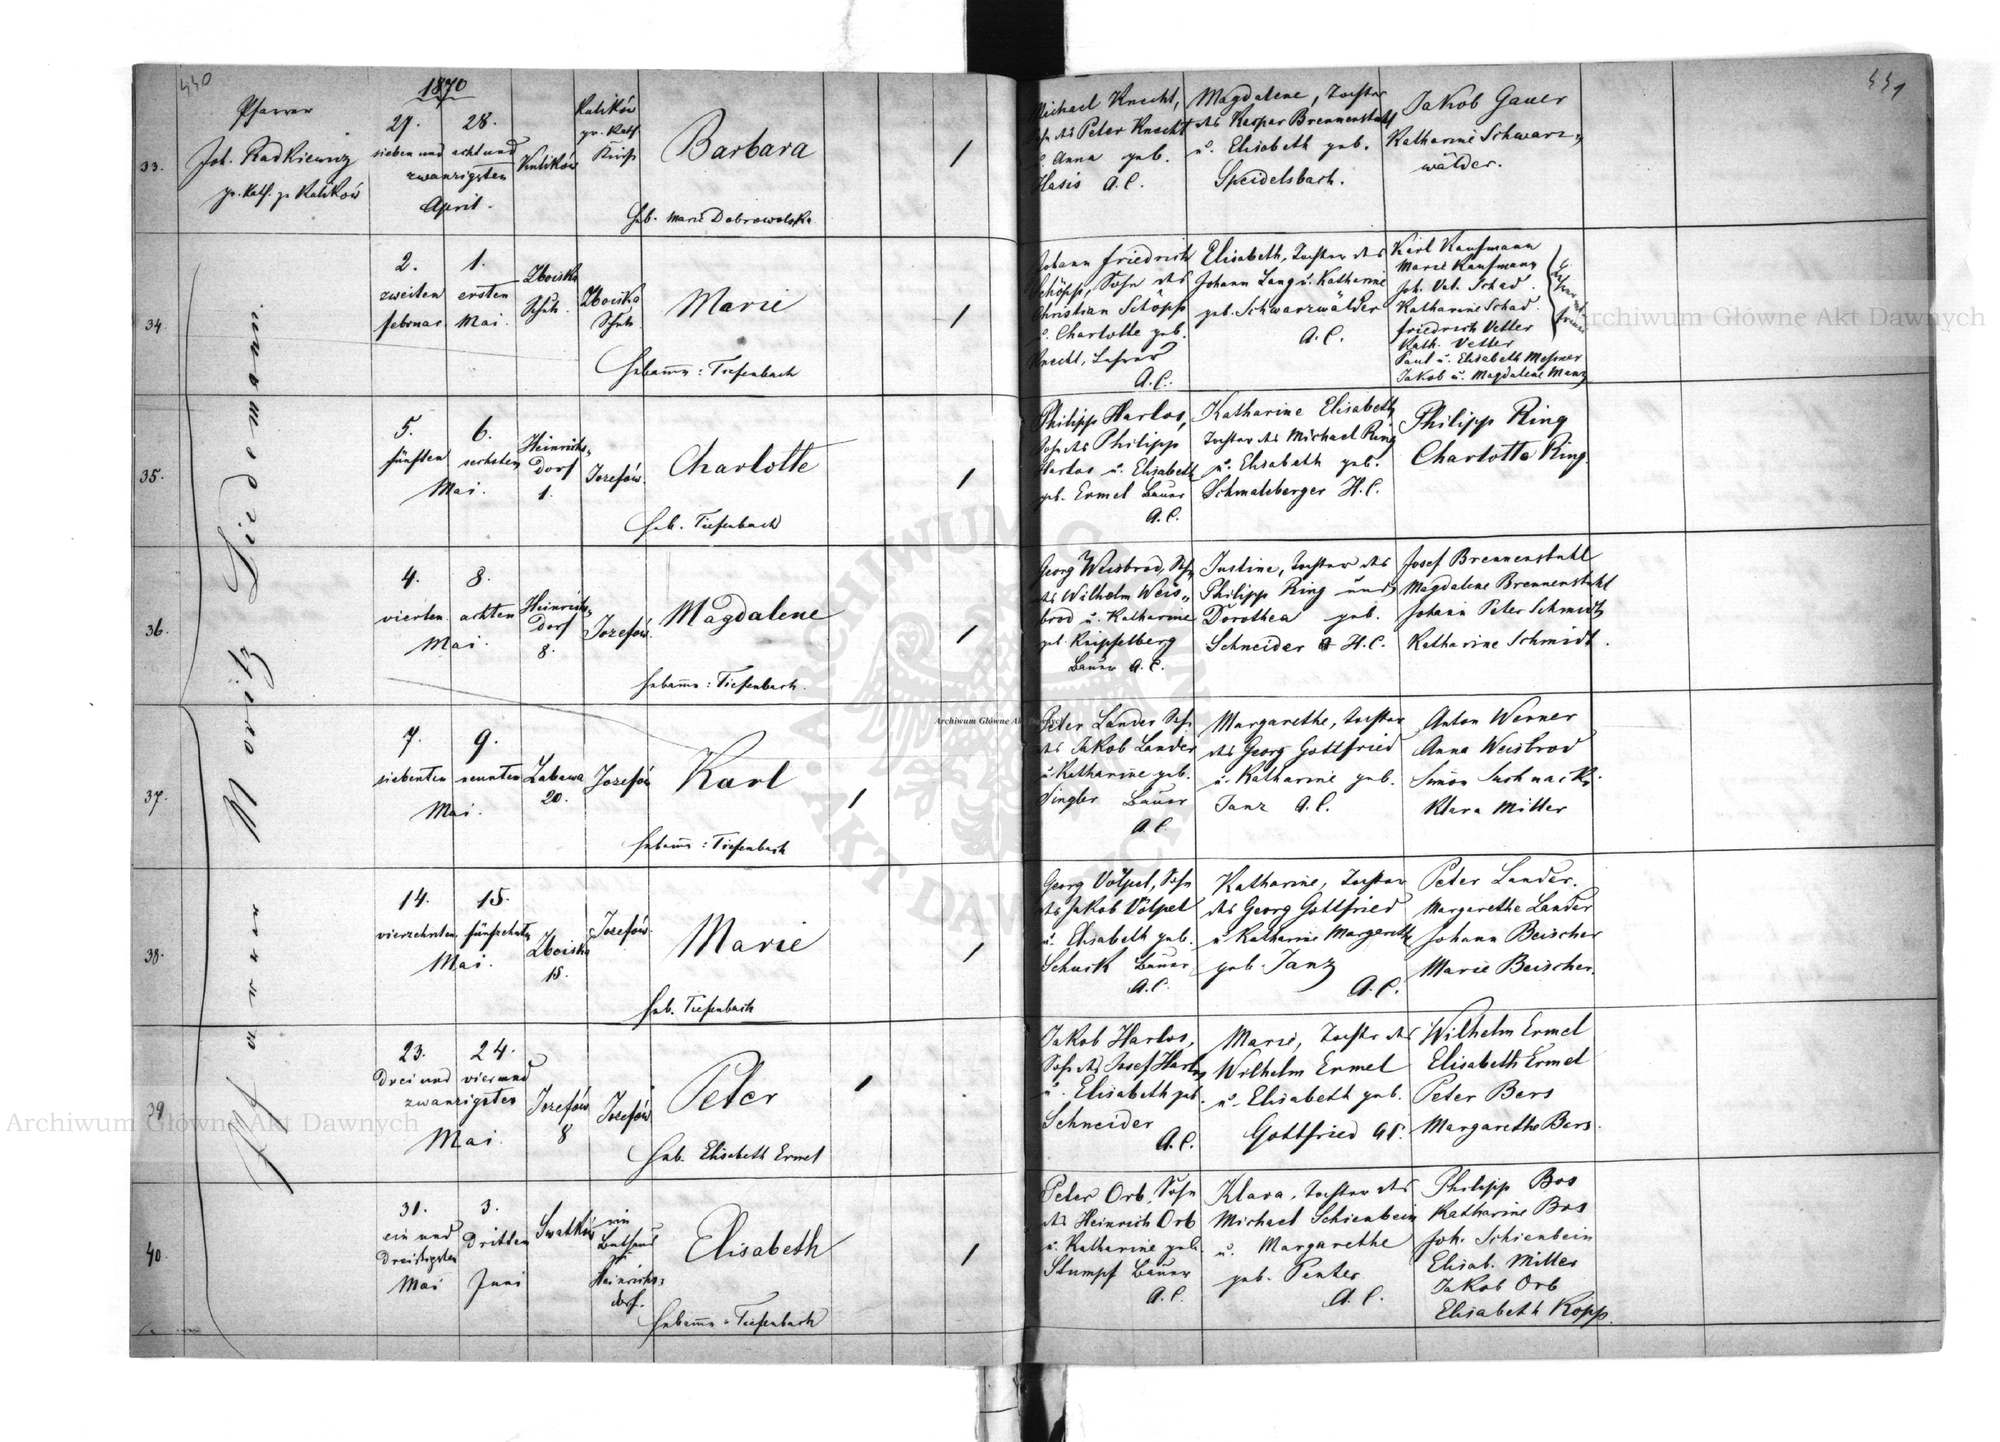 440
1870
33.
Pfarrer
Joh. Radkiewicz
gr. kath. zu Kulików
27. 28.
sieben und acht und
zwanzigsten
April.
Kulików
Kulików
gr. kath.
Kirche
Barbara
1
Heb. Marie Dobrowolska
Pfarrer Moritz
34.
2. 1.
zweiten ersten
Februar Mai.
Zboiska
Schule.
Zboiska
Schule
Marie
1
Hebamme: Tiefenbach
35.
5. 6.
fünften sechsten
Mai.
Heinrichs-
dorf
1.
Jozefów.
Charlotte
1
Heb. Tiefenbach
36.
4. 8.
vierten achten
Mai.
Heinrichs-
dorf
8.
Jozefów.
Magdalene
1
Hebamme: Tiefenbach.
37.
7. 9.
siebenten neunten
Mai.
Zabawa
20.
Jozefów
Karl
1
Hebamme: Tiefenbach
38.
14. 15.
vierzehnten fünfzehnten
Mai.
Zboiska
15.
Jozefów.
Marie
1
Heb. Tiefenbach
39.
23. 24.
drei und vier und
zwanzigsten
Mai.
Jozefów
8
Jozefów
Peter
1
Heb. Elisabeth Ermel
40.
31. 3.
ein und dritten
dreißigsten
Mai Juni
im
Bethaus
zu
Heinrichs-
dorf.
Elisabeth
1
Hebamme: Tiefenbach
441
Michael Knecht,
Sohn des Peter Knecht
u. Anna geb.
Hasis A.C.
Magdalene, Tochter
des Kaspar Brennenstuhl
u. Elisabeth geb.
Speidelsbach.
Jakob Gauer
Katharine Schwarz-
wälder.
Johann Friedrich
Schöpp, Sohn des
Christian Schöpp
u. Charlotte geb.
Knecht, Lehrer
A.C.
Elisabeth, Tochter des
Johann Lang u. Katharine
geb. Schwarzwälder
A.C.
Karl Kaufmann
Marie Kaufmann
Joh. Val. Schad.
Katharine Schad.
Friedrich Vetter
Kath. Vetter
Paul u. Elisabeth Messner
Jakob u. Magdalene Manz
Philipp Harlos,
Sohn des Philipp
Harlos u. Elisabeth
geb. Ermel Bauer
A.C.
Katharine Elisabeth
Tochter des Michael Ring
u. Elisabeth geb.
Schmalzberger H.C.
Philipp Ring
Charlotte Ring.
Georg Weisbrod, Sohn
des Wilhelm Weis-
brod u. Katharine
geb. Knipfelberg
Bauer A.C.
Justine, Tochter des
Philipp Ring und
Dorothea geb.
Schneider H.C.
Josef Brennenstuhl
Magdalene Brennenstuhl
Johann Peter Schmidt
Katharine Schmidt.
Peter Lander Sohn
des Jakob Lander
u. Katharine geb.
Singler Bauer
A.C.
Margarethe, Tochter
des Georg Gottfried
u. Katharine geb.
Janz A.C.
Anton Werner
Anna Weisbrod
Klara Miller
Georg Völpel, Sohn
des Jakob Völpel
u. Elisabeth geb.
Schuck Bauer
A.C.
Katharine, Tochter
des Georg Gottfried
u. Katharine Margarethe
geb. Janz
A.C.
Peter Lander.
Margarethe Lander
Johann Beischer
Marie Beischer.
Jakob Harlos,
Sohn des Josef Harlos
u. Elisabeth geb.
Schneider
A.C.
Marie, Tochter des
Wilhelm Ermel
u. Elisabeth geb.
Gottfried A.C.
Wilhelm Ermel
Elisabeth Ermel
Peter Bers
Margarethe Bers.
Peter Orb, Sohn
des Heinrich Orb
u. Katharine geb.
Stumpf Bauer
A.C.
Klara, Tochter des
Michael Schienbein
u. Margarethe
geb. Penter
A.C.
Philipp Bos
Katharine Bos
Joh. Schienbein
Elisab. Miller
Jakob Orb
Elisabeth Kopp.
Archiwum Główne Akt Dawnych
Archiwum Główne Akt Dawnych
Archiwum Główne Akt Dawnych